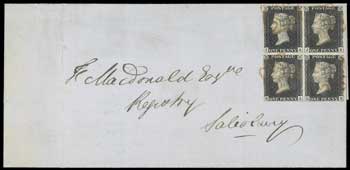 POSTAGE POSTAGE
ONE PENNY ONE PENNY
POSTAGE POSTAGE
ONE PENNY ONE PENNY
F. Macdonald Esqre
Registry
Salisbury